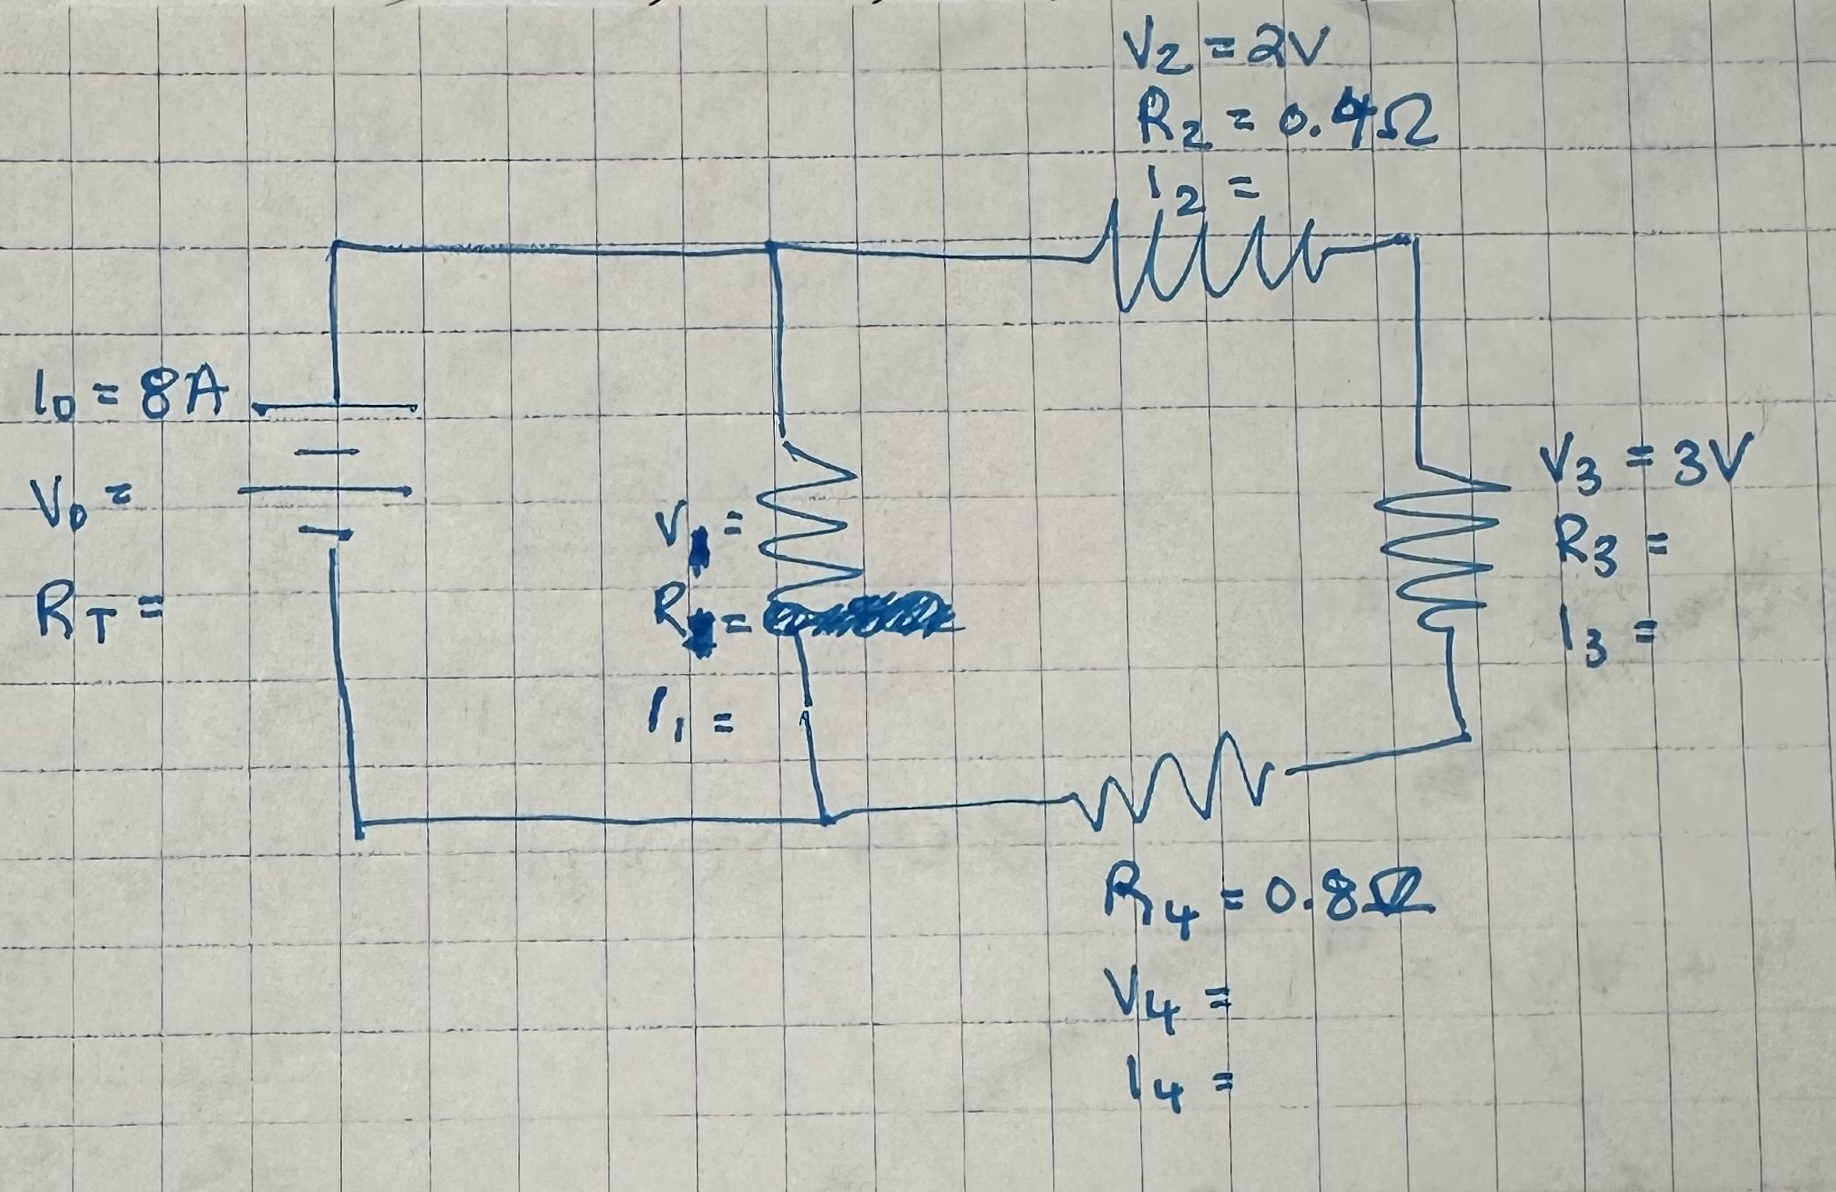 V2 = 2V
R2 = 0.4Ω
I2 =
I0 = 8A
V0 =
RT =
V1 =
R1 =
I1 =
V3 = 3V
R3 =
I3 =
R4 = 0.8Ω
V4 =
I4 =